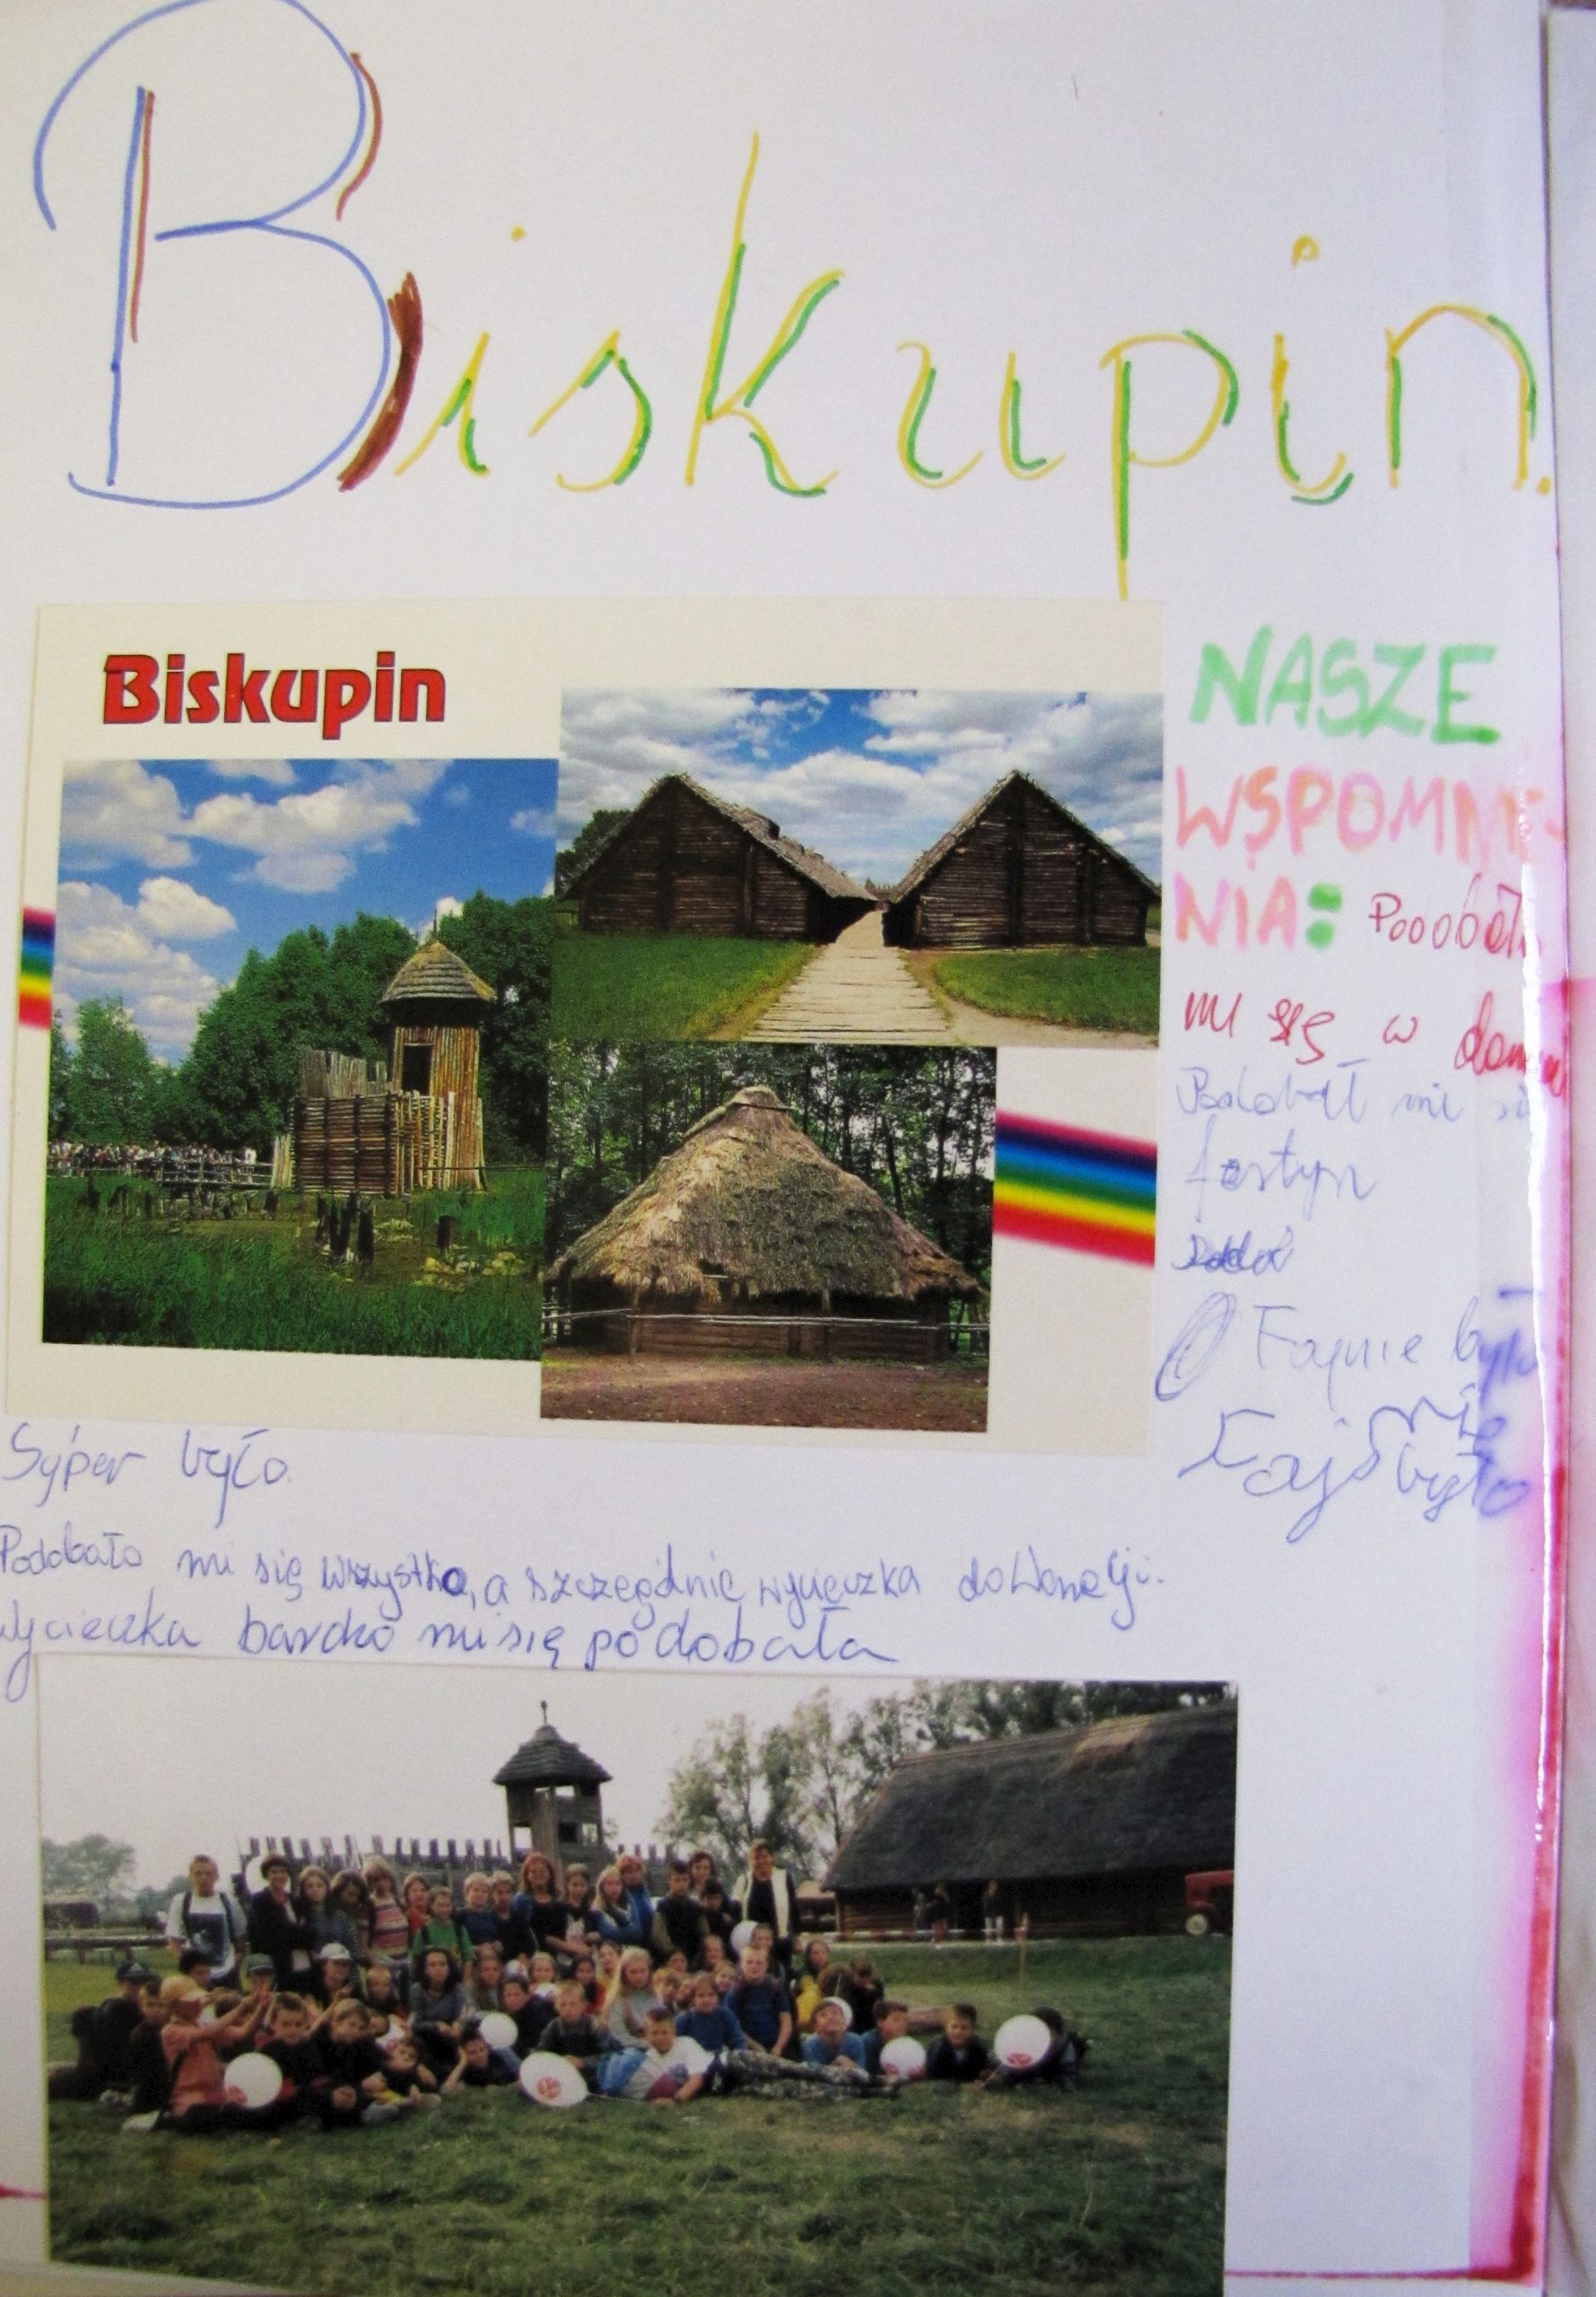 Biskupin.
Biskupin
NASZE
WSPOMNIE-
NIA:
mi się w
Podobał mi
festyn
Fajnie było
Fajnie
było
Super było.
Podobało mi się wszystko, a szczególnie wycieczka do Wenecji.
Wycieczka bardzo mi się podobała